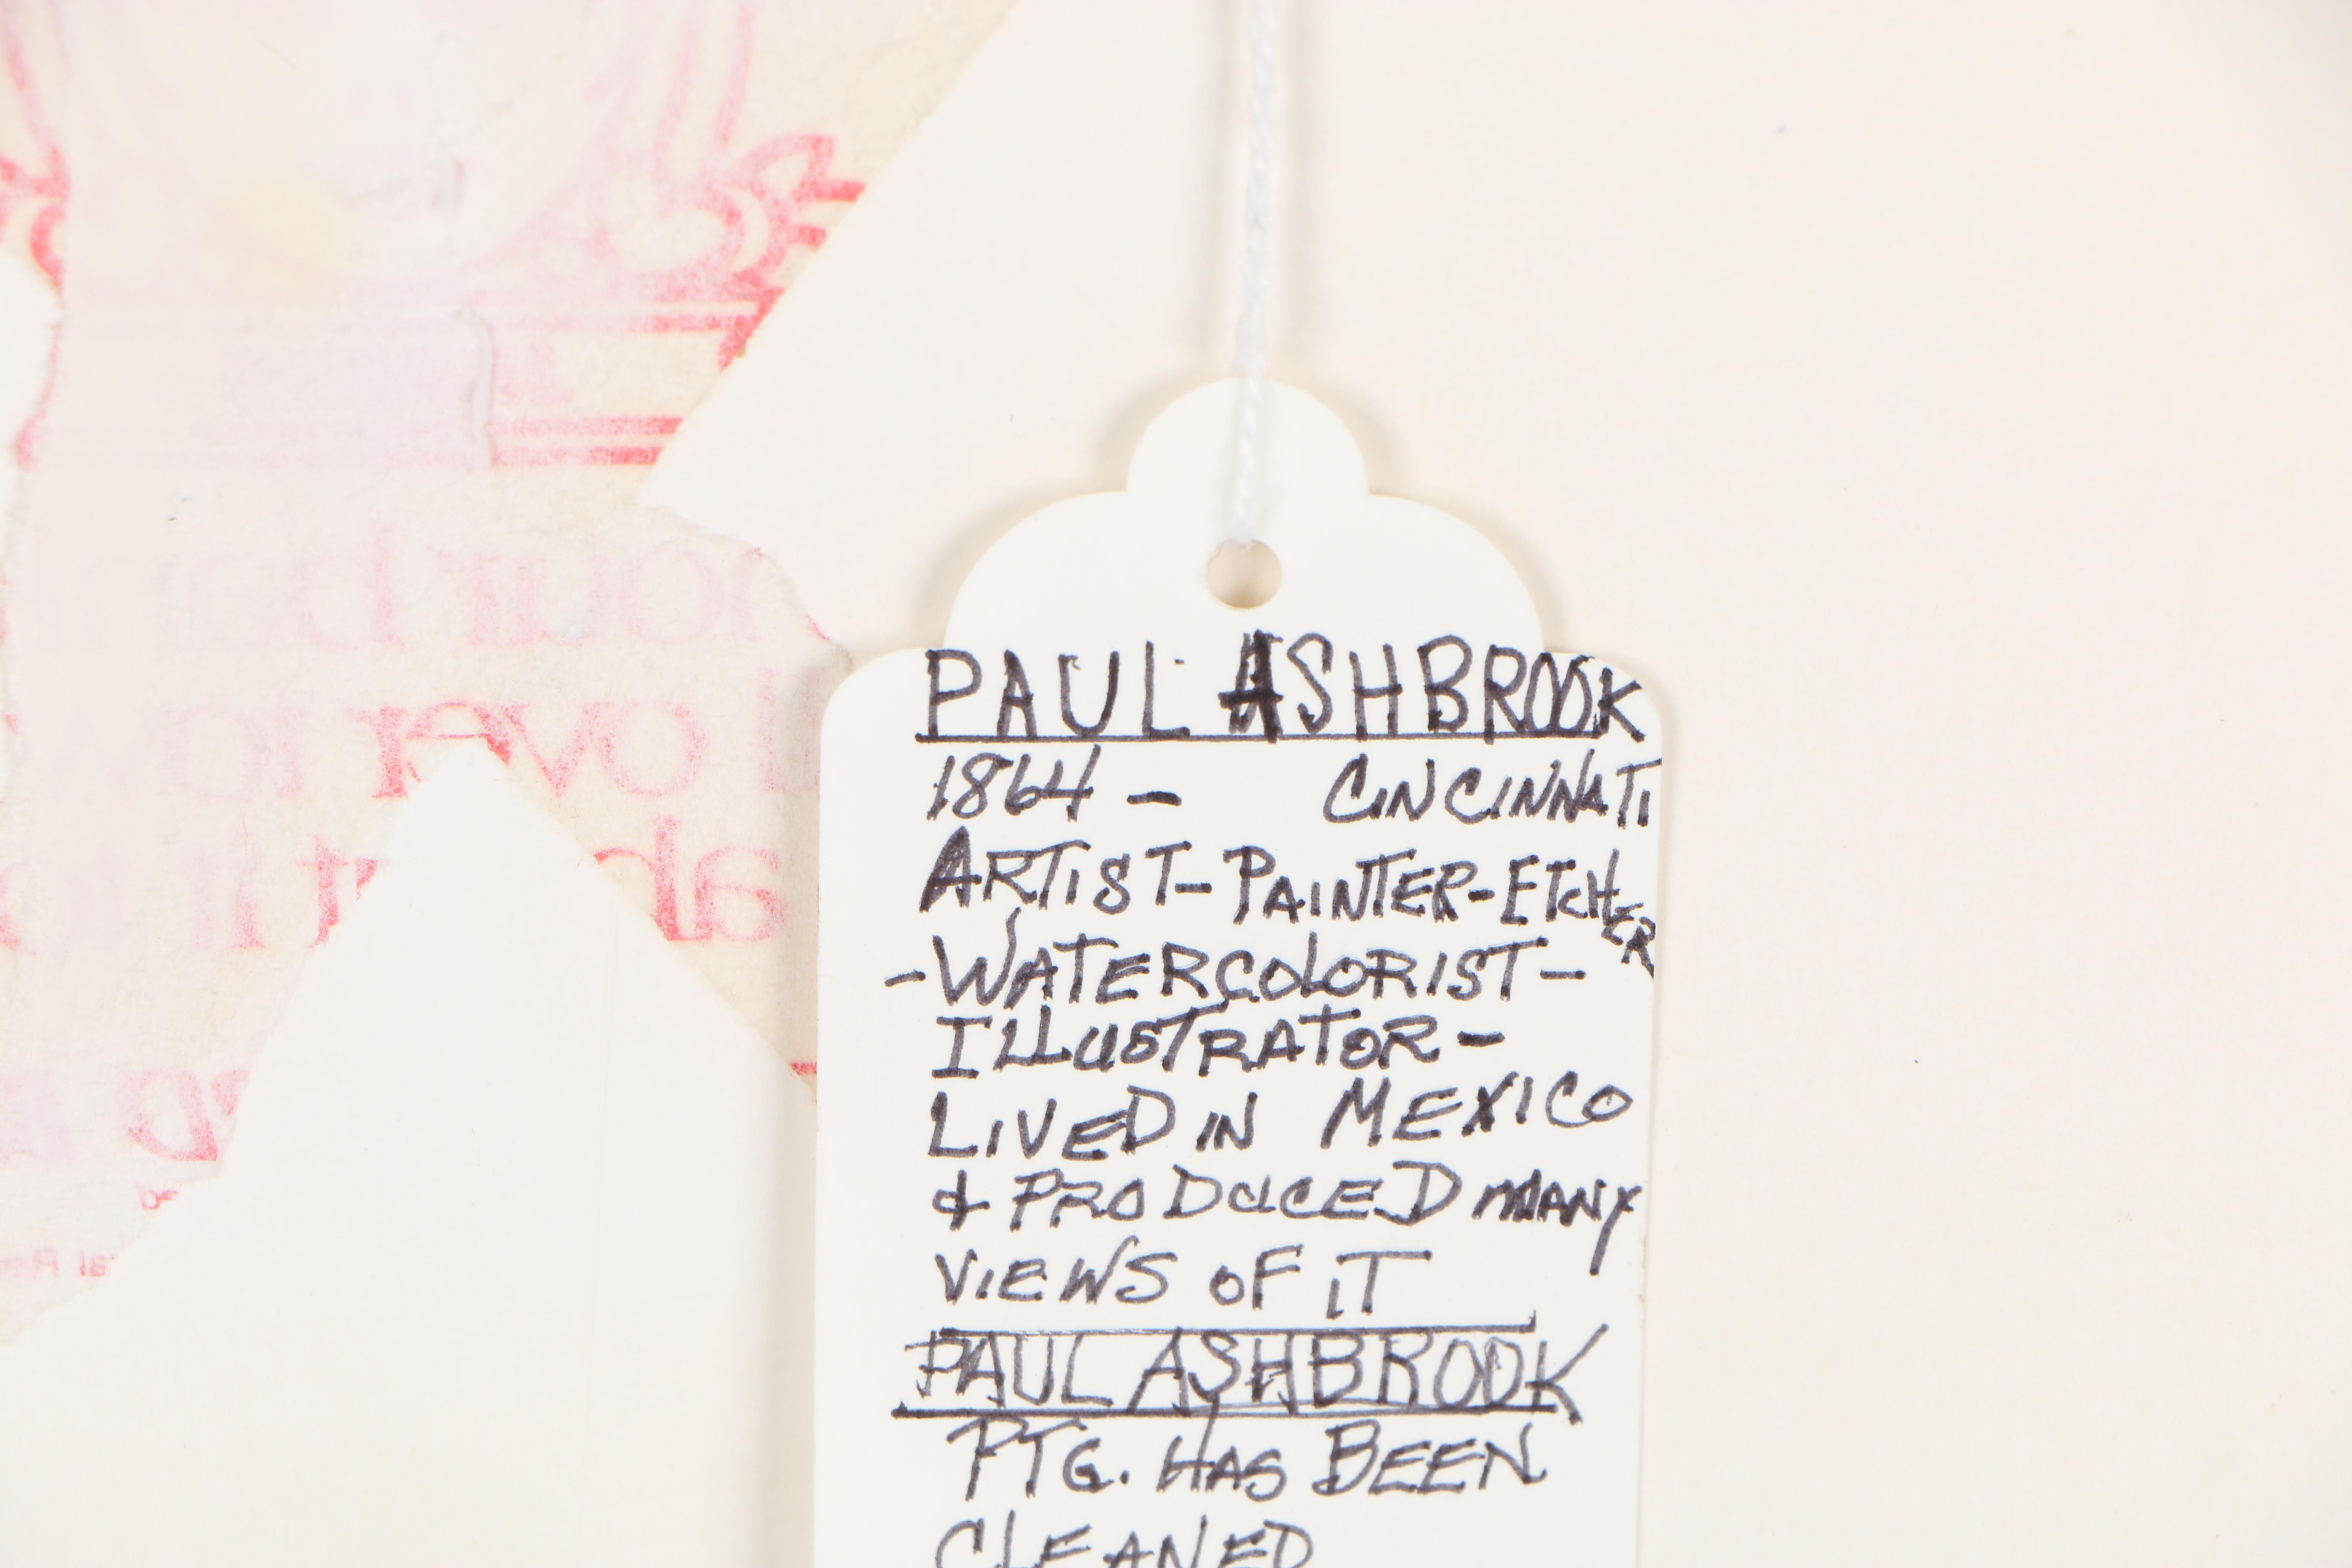 PAUL ASHBROOK
1864 – CINCINNATI
ARTIST–PAINTER–ETCHER
–WATERCOLORIST–
ILLUSTRATOR–
LIVED IN MEXICO
& PRODUCED MANY
VIEWS OF IT
PAUL ASHBROOK
PTG. HAS BEEN
CLEANED